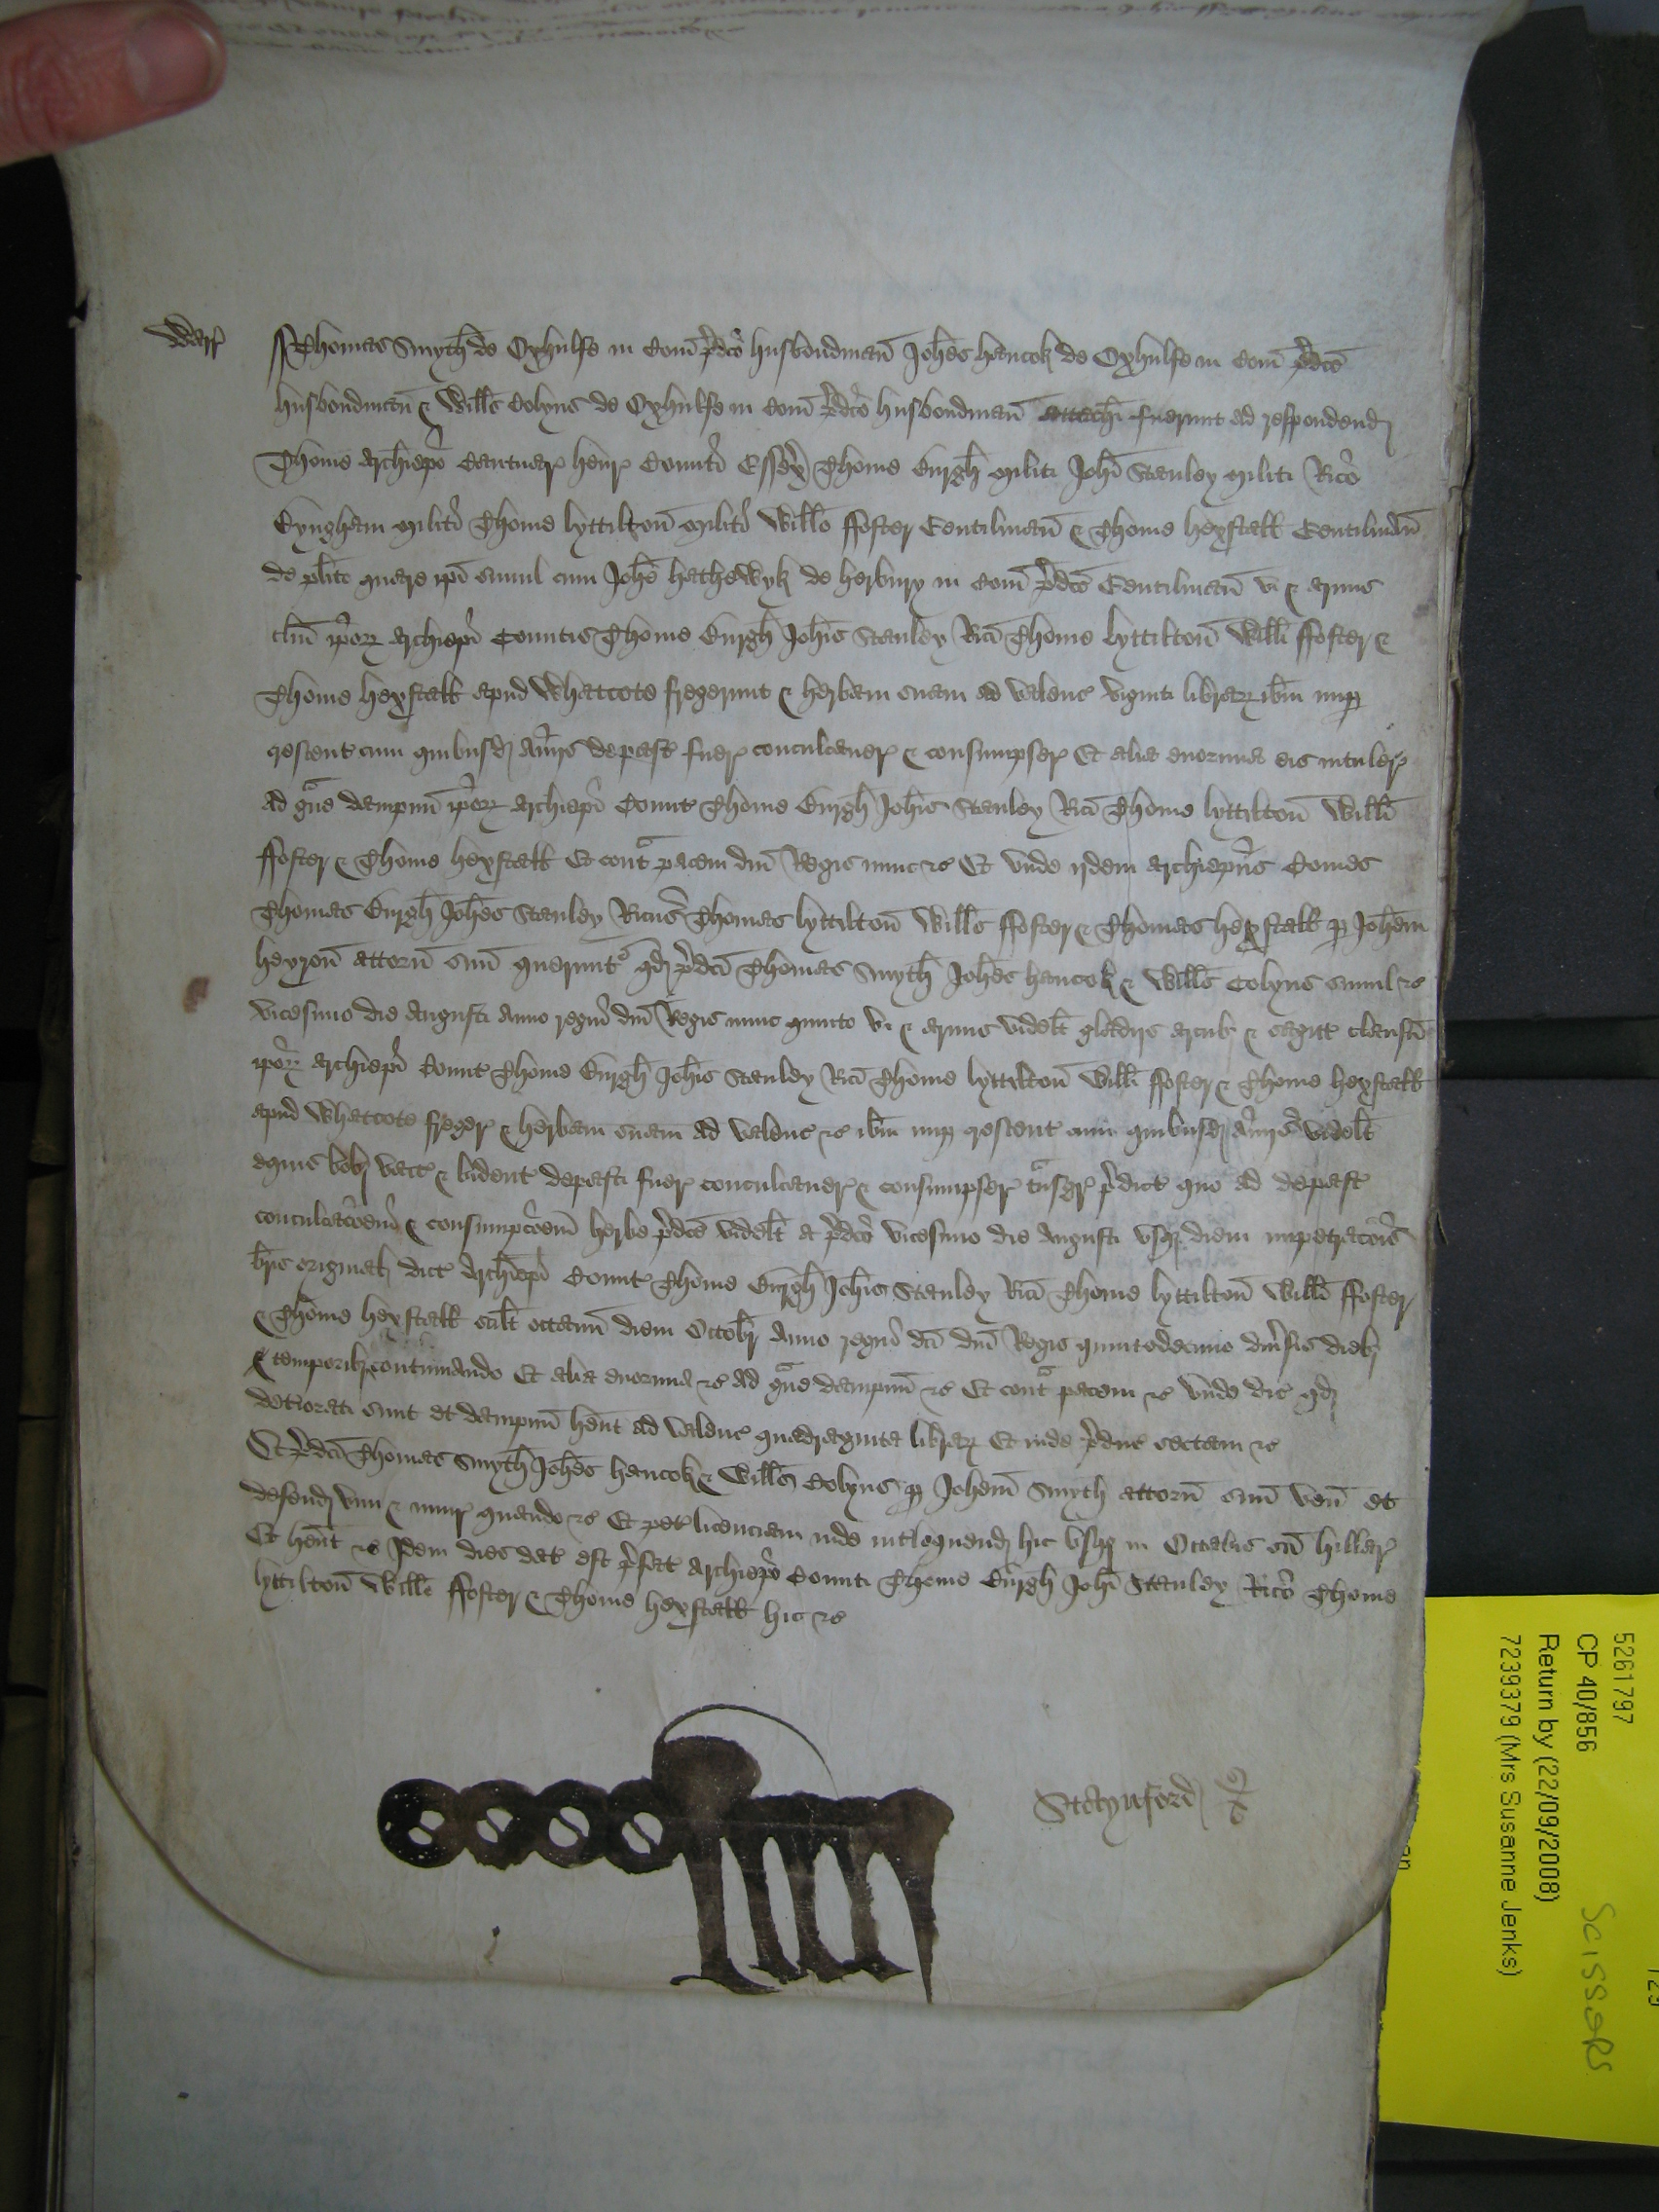 Warr
Thomas Smyth de Oxhulfe in Com p̄dc̄o husbondman̄ Joh̄es hancok de Oxhulfe in Com̄ p̄dc̄o
husbondman̄ & Will̄s Colyns de Oxhulfe in Com̄ p̄dc̄o husbondman̄ attach̄ fuerunt ad respondend
Thome Archiep̄o Cantuar Henr Comiti Essex Thome Burgh militi Joh̄i Stanley militi Ric̄o
Byngham militi Thome lyttilton̄ militi Will̄o ffoster Gentilman̄ & Thome hexstall Gentilman̄
de pl̄ito quare ip̄i simul cum Joh̄e hathewyk de herbury in Com̄ p̄dc̄o Gentilman̄ vi & armis
clm̄ ip̄or Archiep̄i Comitis Thome Burgh Joh̄is Stanley Ric̄i Thome lyttilton̄ Will̄i ffoster &
Thome hexstall apud Whatcote fregerunt & herbam suam ad valenc viginti librar ib̄m nup
crescent cum quibusd au̅iis depast fuer conculcauer & consumpser Et alia enormia eis intuler
ad gͣue dampnu̅ ip̄or Archiep̄i Comit Thome Burgh Joh̄is Stanley Ric̄i Thome lyttilton̄ Will̄i
ffoster & Thome hexstall Et contͣ pacem dn̄i Regis nunc &c Et vnde ijdem Archiep̄us Comes
Thomas Burgh Joh̄es Stanley Ricus Thomas lyttilton̄ Will̄s ffoster & Thomas hexstall p Joh̄em
attorn̄ suu̅ querunt̉ qd p̄dc̄i Thomas Smyth Joh̄es hancok & Will̄s Colyns simul &c
vicesimo die Augusti Anno regni dn̄i Regis nunc quinto vi & armis videlt gladijs arcub & sagitt clausu̅
ip̄or Archiep̄i Comit Thome Burgh Joh̄is Stanley Ric̄i Thome lyttilton̄ Will̄i ffoster & Thome hexstall
apud Whatcote freger & herbam suam ad valenc &c ib̄m nup crescent cum quibusd au̅iis videlt
equis bob vacc & bident depasti fuer conculcauer & consumpser tͣnsgr p̄dict quo ad depast
conculcac̄oem & consumpc̄oem herbe p̄dc̄e videlt a p̄dc̄o vicesimo die Augusti vsq diem impetrac̄ois
br̄is original dict Archiep̄i Comit Thome Burgh Joh̄is Stanley Ric̄i Thome lyttilton̄ Will̄i ffoster
& Thome hexstall scilt octauu̅ diem Octobr Anno regni dc̄i dn̄i Regis quintodecimo diu̅sis dieb
& temporib continuando Et alia enormia &c ad gͣue dampnu̅ &c Et contͣ pacem &c vnde dic qd
det̉iorati sunt et dampnu̅ hen̄t ad valenc quadraginta librar Et inde p̄duc sectam &c
Et p̄dc̄i Thomas Smyth Joh̄es hancok & Will̄s Colyns p Joh̄em Smyth attorn̄ suu̅ ven̄ et
defend vim & iniur quando &c Et pet licenciam inde int̉loquend hic vsq in Octabis sc̄i hillar
Et hen̄t &c Idem dies dat est p̄fat Archiep̄o Comiti Thome Burgh Joh̄i Stanley Ric̄o Thome
lyttilton̄ Will̄o ffoster & Thome hexstall hic &c
Staynford
5261797
CP 40/856
Return by (22/09/2008)
7239379 (Mrs Susanne Jenks)
Scissors